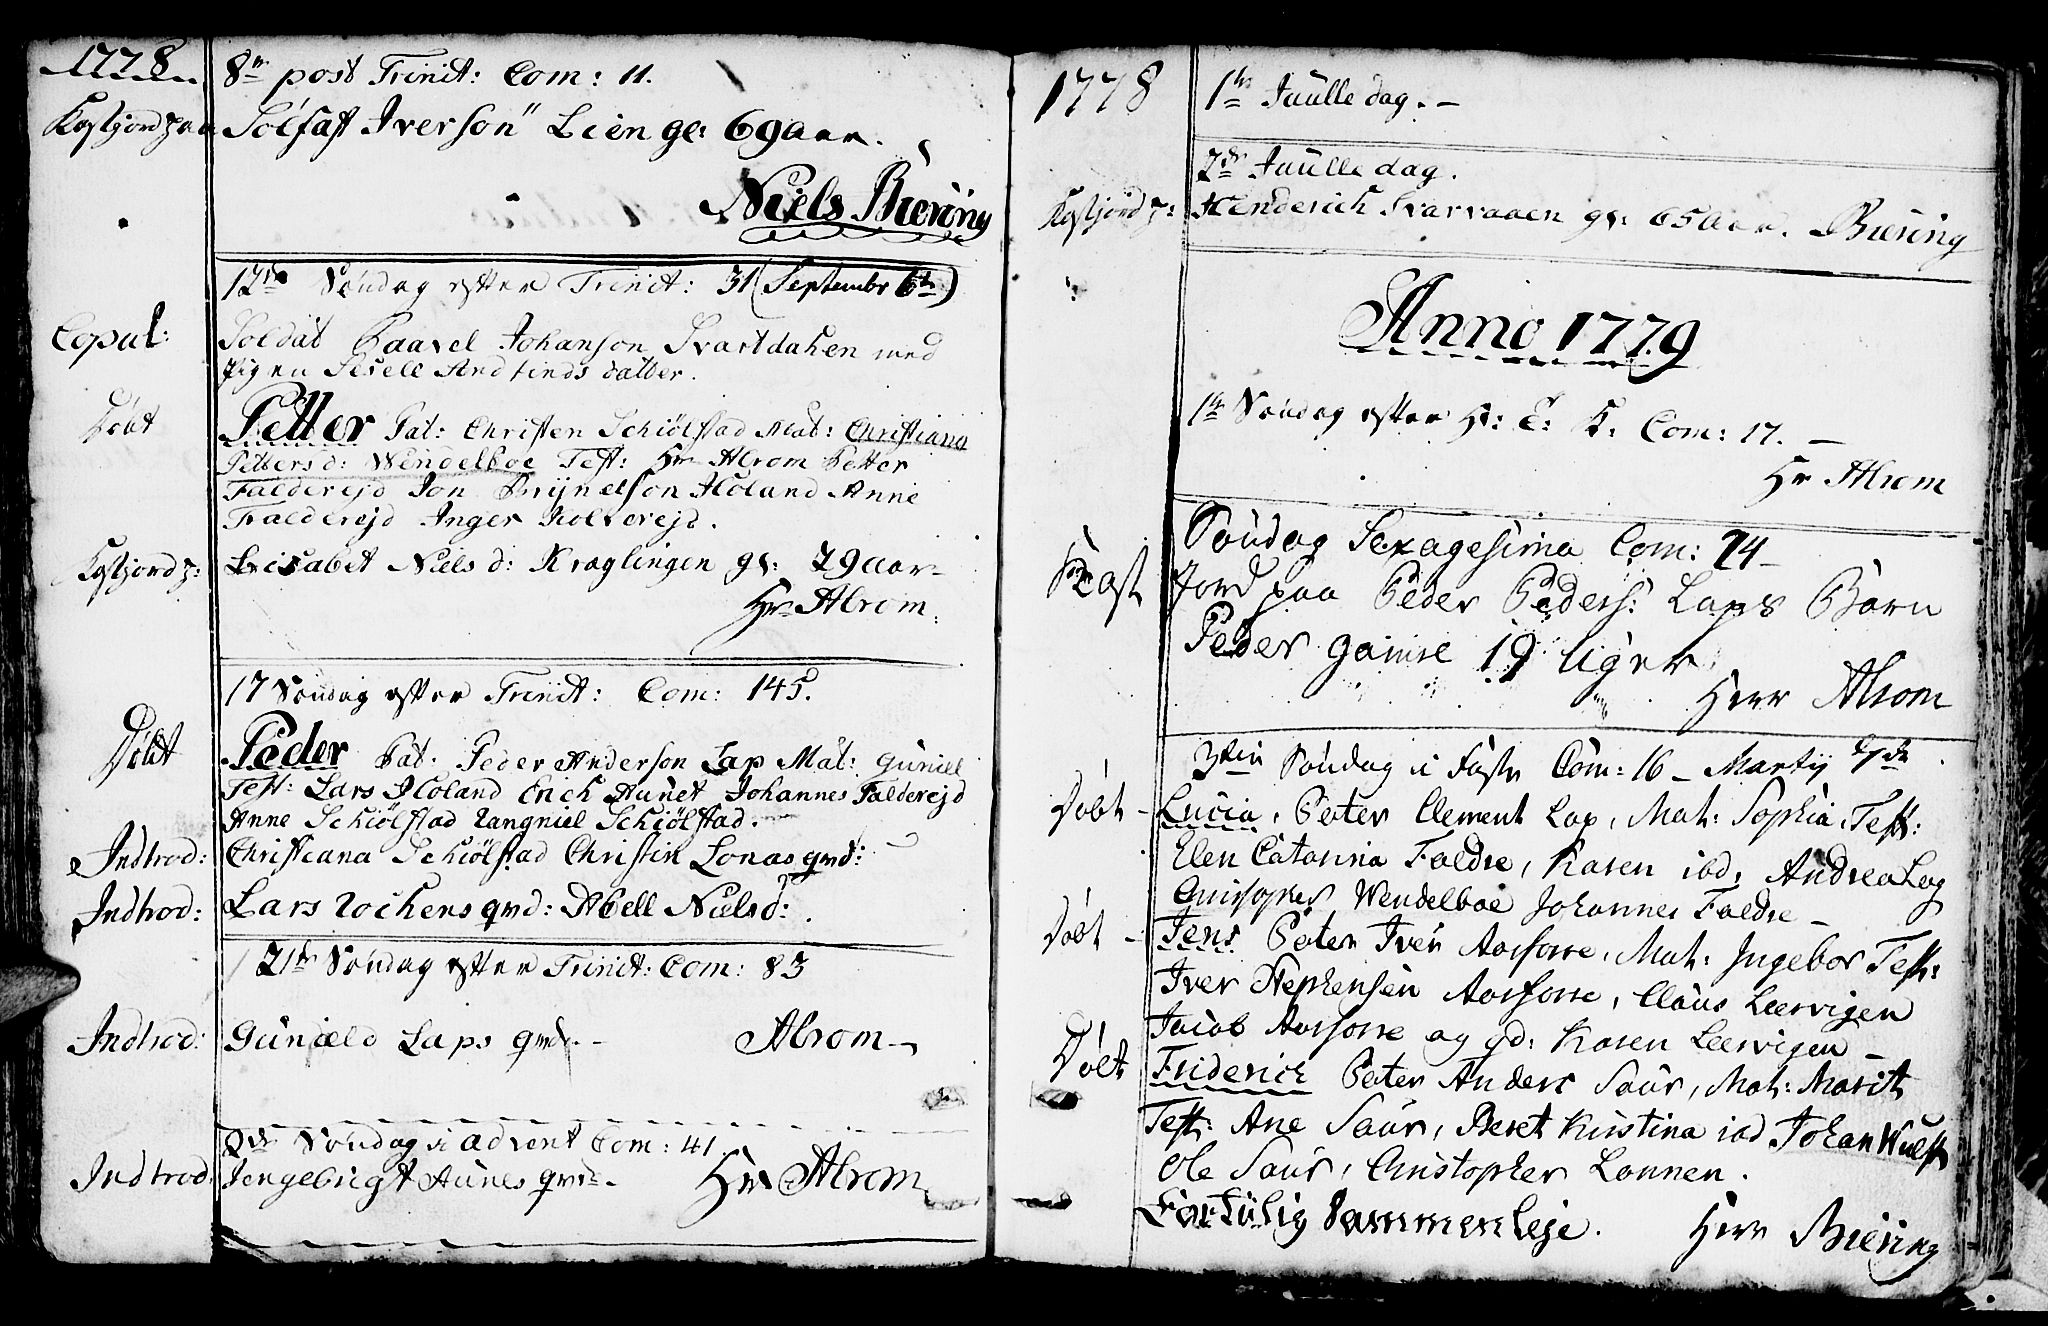 1778
8de post Trinit: Com: 11.
Kastjord paa Solfast Iverson Lien gl: 69 aar.
Niels Buering
12te Søndag efter Trinit: 31 (Septembr 6te)
Copul: Soldat Paavel Johanson Svartdahlen med
Pigen Sesell Andfinds datter.
Döbt Petter Pat: Christen Schiölstad Mat: Christiana
Pettersd: Wendelboe Test: Hr Alrom Petter
Falderejd Jon Brynelson Holand Anne
Falderejd Inger Holverejd.
Kastjord p: Lisabet Nielsd: Kroglingen gl: 29 aar
Hr Alrom.
17 Søndag efter Trinit: Com: 145.
Döbt Peder Pat. Peder Anderson Lap Mat: Guniel
Test: Lars Holand Erich Aunet Johannes Falderejd
Anne Schiölstad Rangniel Schiölstad.
Indtrod: Christiana Schiölstad Christin Lonas qvd:
Indtrod: Lars Rochens qvd: Abell Nielsd:
21de Søndag efter Trinit: Com: 83
Indtrod: Gunield Laps qvd.
Alrom
2de Søndag i Advent Com: 41.
Indtrod: Jengebrigt Aunes qvd.
Hr Alrom
1778
1te Juulle dag.
2den Juulle dag.
Kastjord p: Henderich Svarvaaen gl: 65 aar. Buering
Anno 1779
1te Søndag efter H: 3: K: Com: 17.
Hr Alrom
Søndag Sexagesima Com: 24
Kast Jord paa Peder Peders: Laps Barn
Peder gamel 19 uger
Herr Alrom
3die Søndag i Faste Com: 16 Martij 7de
Döbt Lucia, Pater Clement Lap, Mat: Sophia, Test:
Elen Catarina Foldre, Karen ibd, Andrea Lag
Christopher Wendelboe Johannes Foldre
Döbt Jens Pater Iver Aarforre, Mat: Ingebor Test:
Iver Stephensen Aarforre, Claus Leervigen
Jacob Aarforre og qd: Karen Leervigen
Döbt Friderich Pater Anders Saur, Mat: Marit
Test: Ane Saur, Beret Kirstina ibd Johan Wulff
Ole Saur, Christopher Lonnen.
Fortülig Sammenleje. Herr Buering